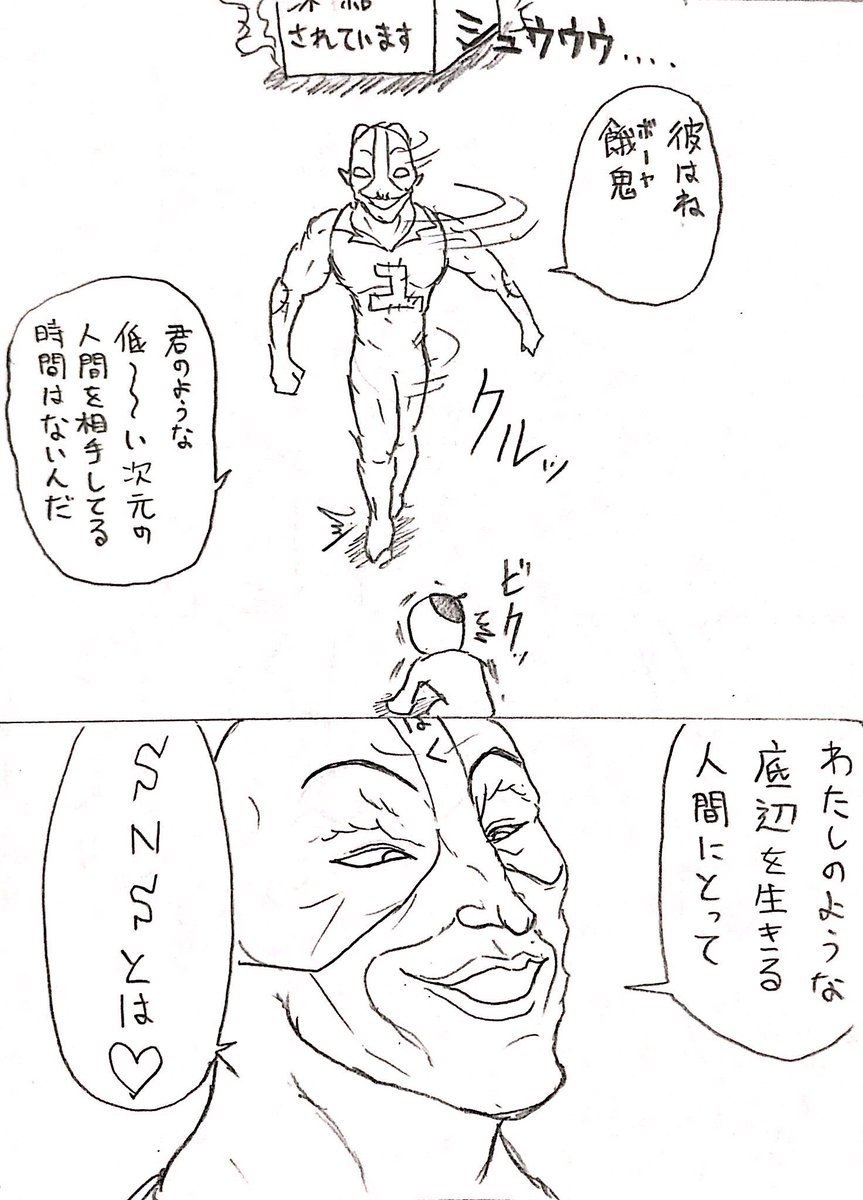 されています
シュウウウ....
彼はね
ボーヤ
餓鬼
君のような
低～～い次元の
人間を相手してる
時間はないんだ
クルッ
ビクッ
わたしのような
底辺を生きる
人間にとって
SNSとは♡